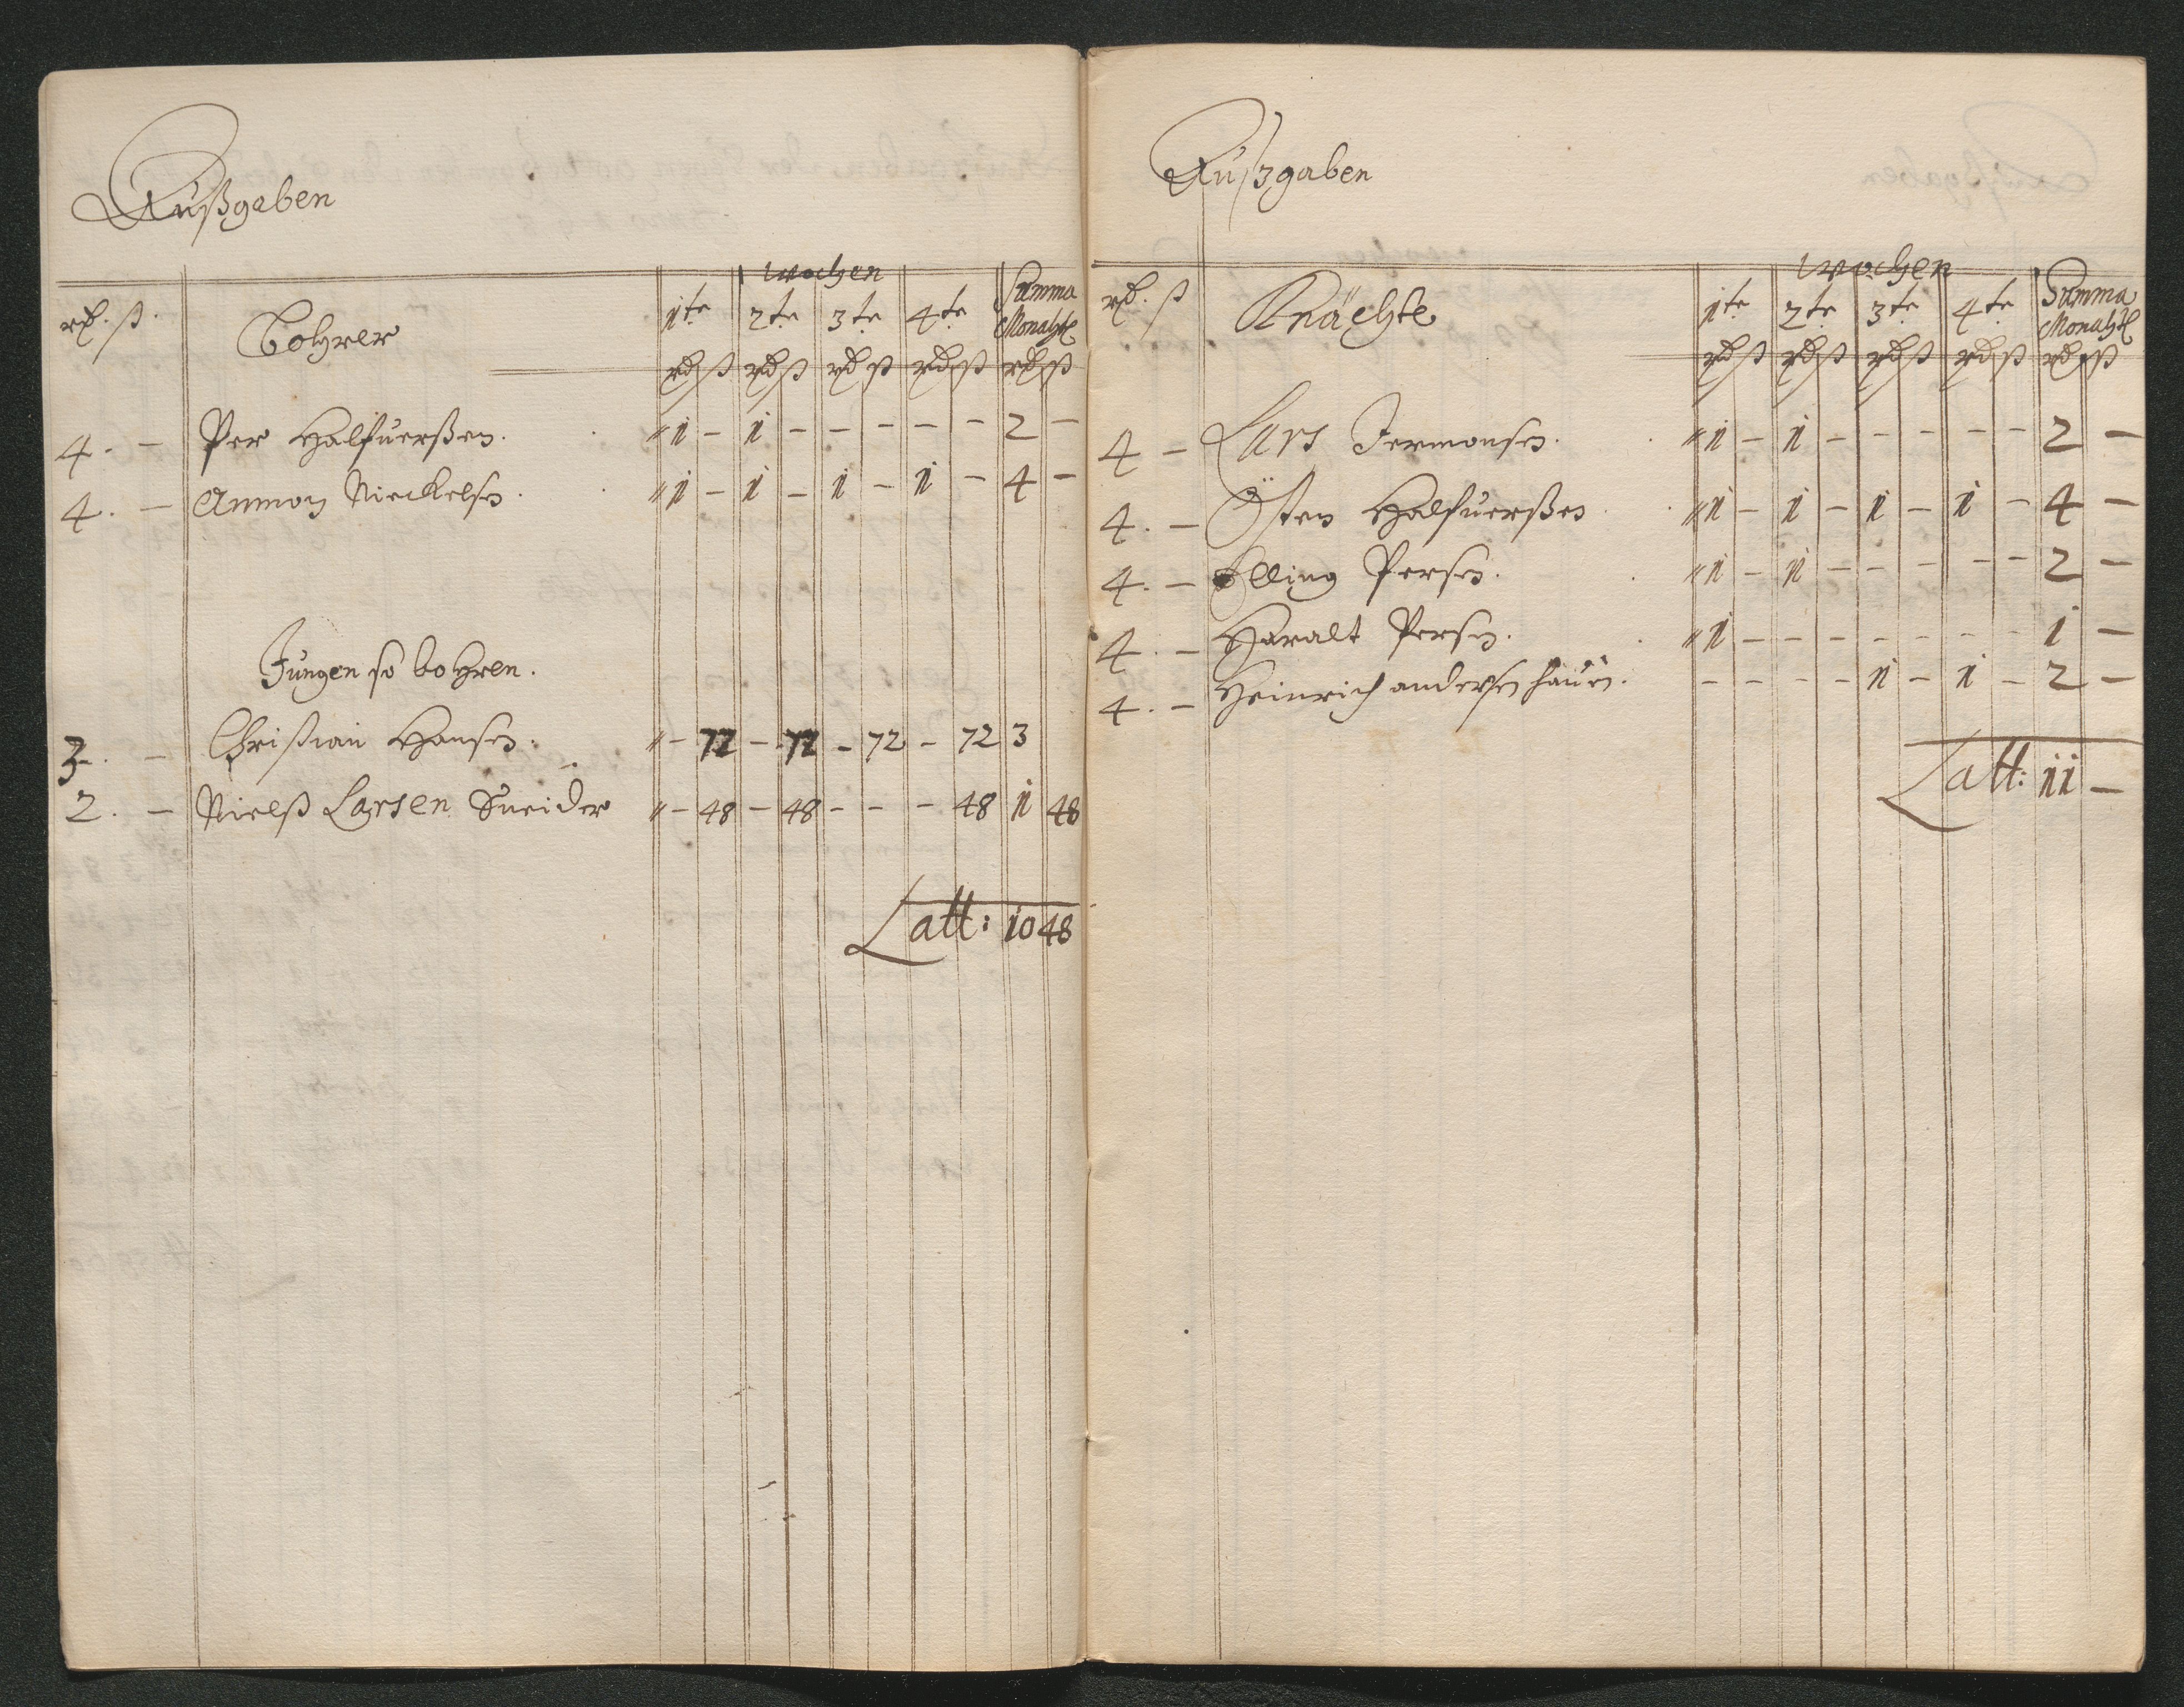 Außgaben
wochen
rd. ß. Bohrer 1te 2te 3te 4te Summa Monahtl
rd ß rd ß rd ß rd ß rd ß
4. - Per Halfuerßen. " 1 - 1 - - - - - 2 -
4. - Ammon Nieckelsen. " 1 - 1 - 1 - 1 - 4 -
Jungen so bohren.
3. - Christian Hansen. " - 72 - 72 - 72 - 72 3
2. - Nielß Larsen Sneider " - 48 - 48 - - - 48 1 48
Latt: 10 48
Außgaben
wochen
rd. ß Knächte 1te 2te 3te 4te Summa Monahtl
rd ß rd ß rd ß rd ß rd ß
4 - Lars Jermonsen. " 1 - 1 - - - - - 2 -
4. - Östen Halfuerßen " 1 - 1 - 1 - 1 - 4 -
4. - Elling Persen. " 1 - 1 - - - - - 2 -
4. - Haralt Persen. " 1 - - - - - - - 1 -
4. - Heinrich andersen - - - - 1 - 1 - 2 -
Latt: 11 -